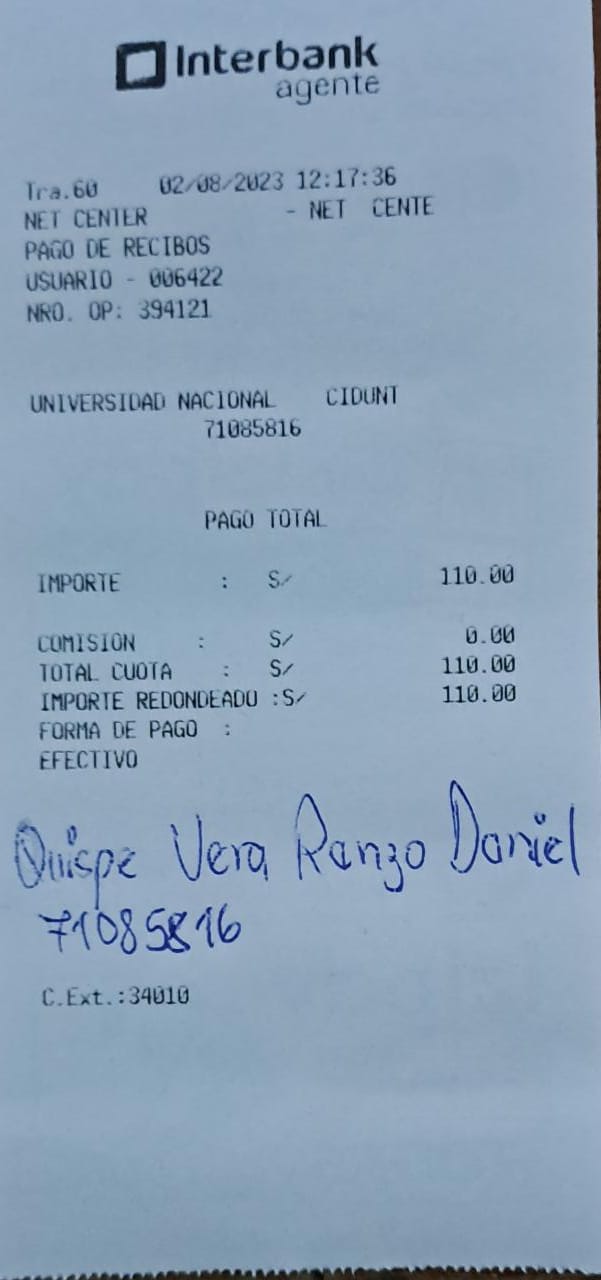 Interbank
agente
Tra.60 02/08/2023 12:17:36
NET CENTER - NET CENTE
PAGO DE RECIBOS
USUARIO - 006422
NRO. OP: 394121
UNIVERSIDAD NACIONAL CIDUNT
71085816
PAGO TOTAL
IMPORTE : S/ 110.00
COMISION : S/ 0.00
TOTAL CUOTA : S/ 110.00
IMPORTE REDONDEADO :S/ 110.00
FORMA DE PAGO :
EFECTIVO
Quispe Vera Renzo Daniel
71085816
C.Ext.:34010